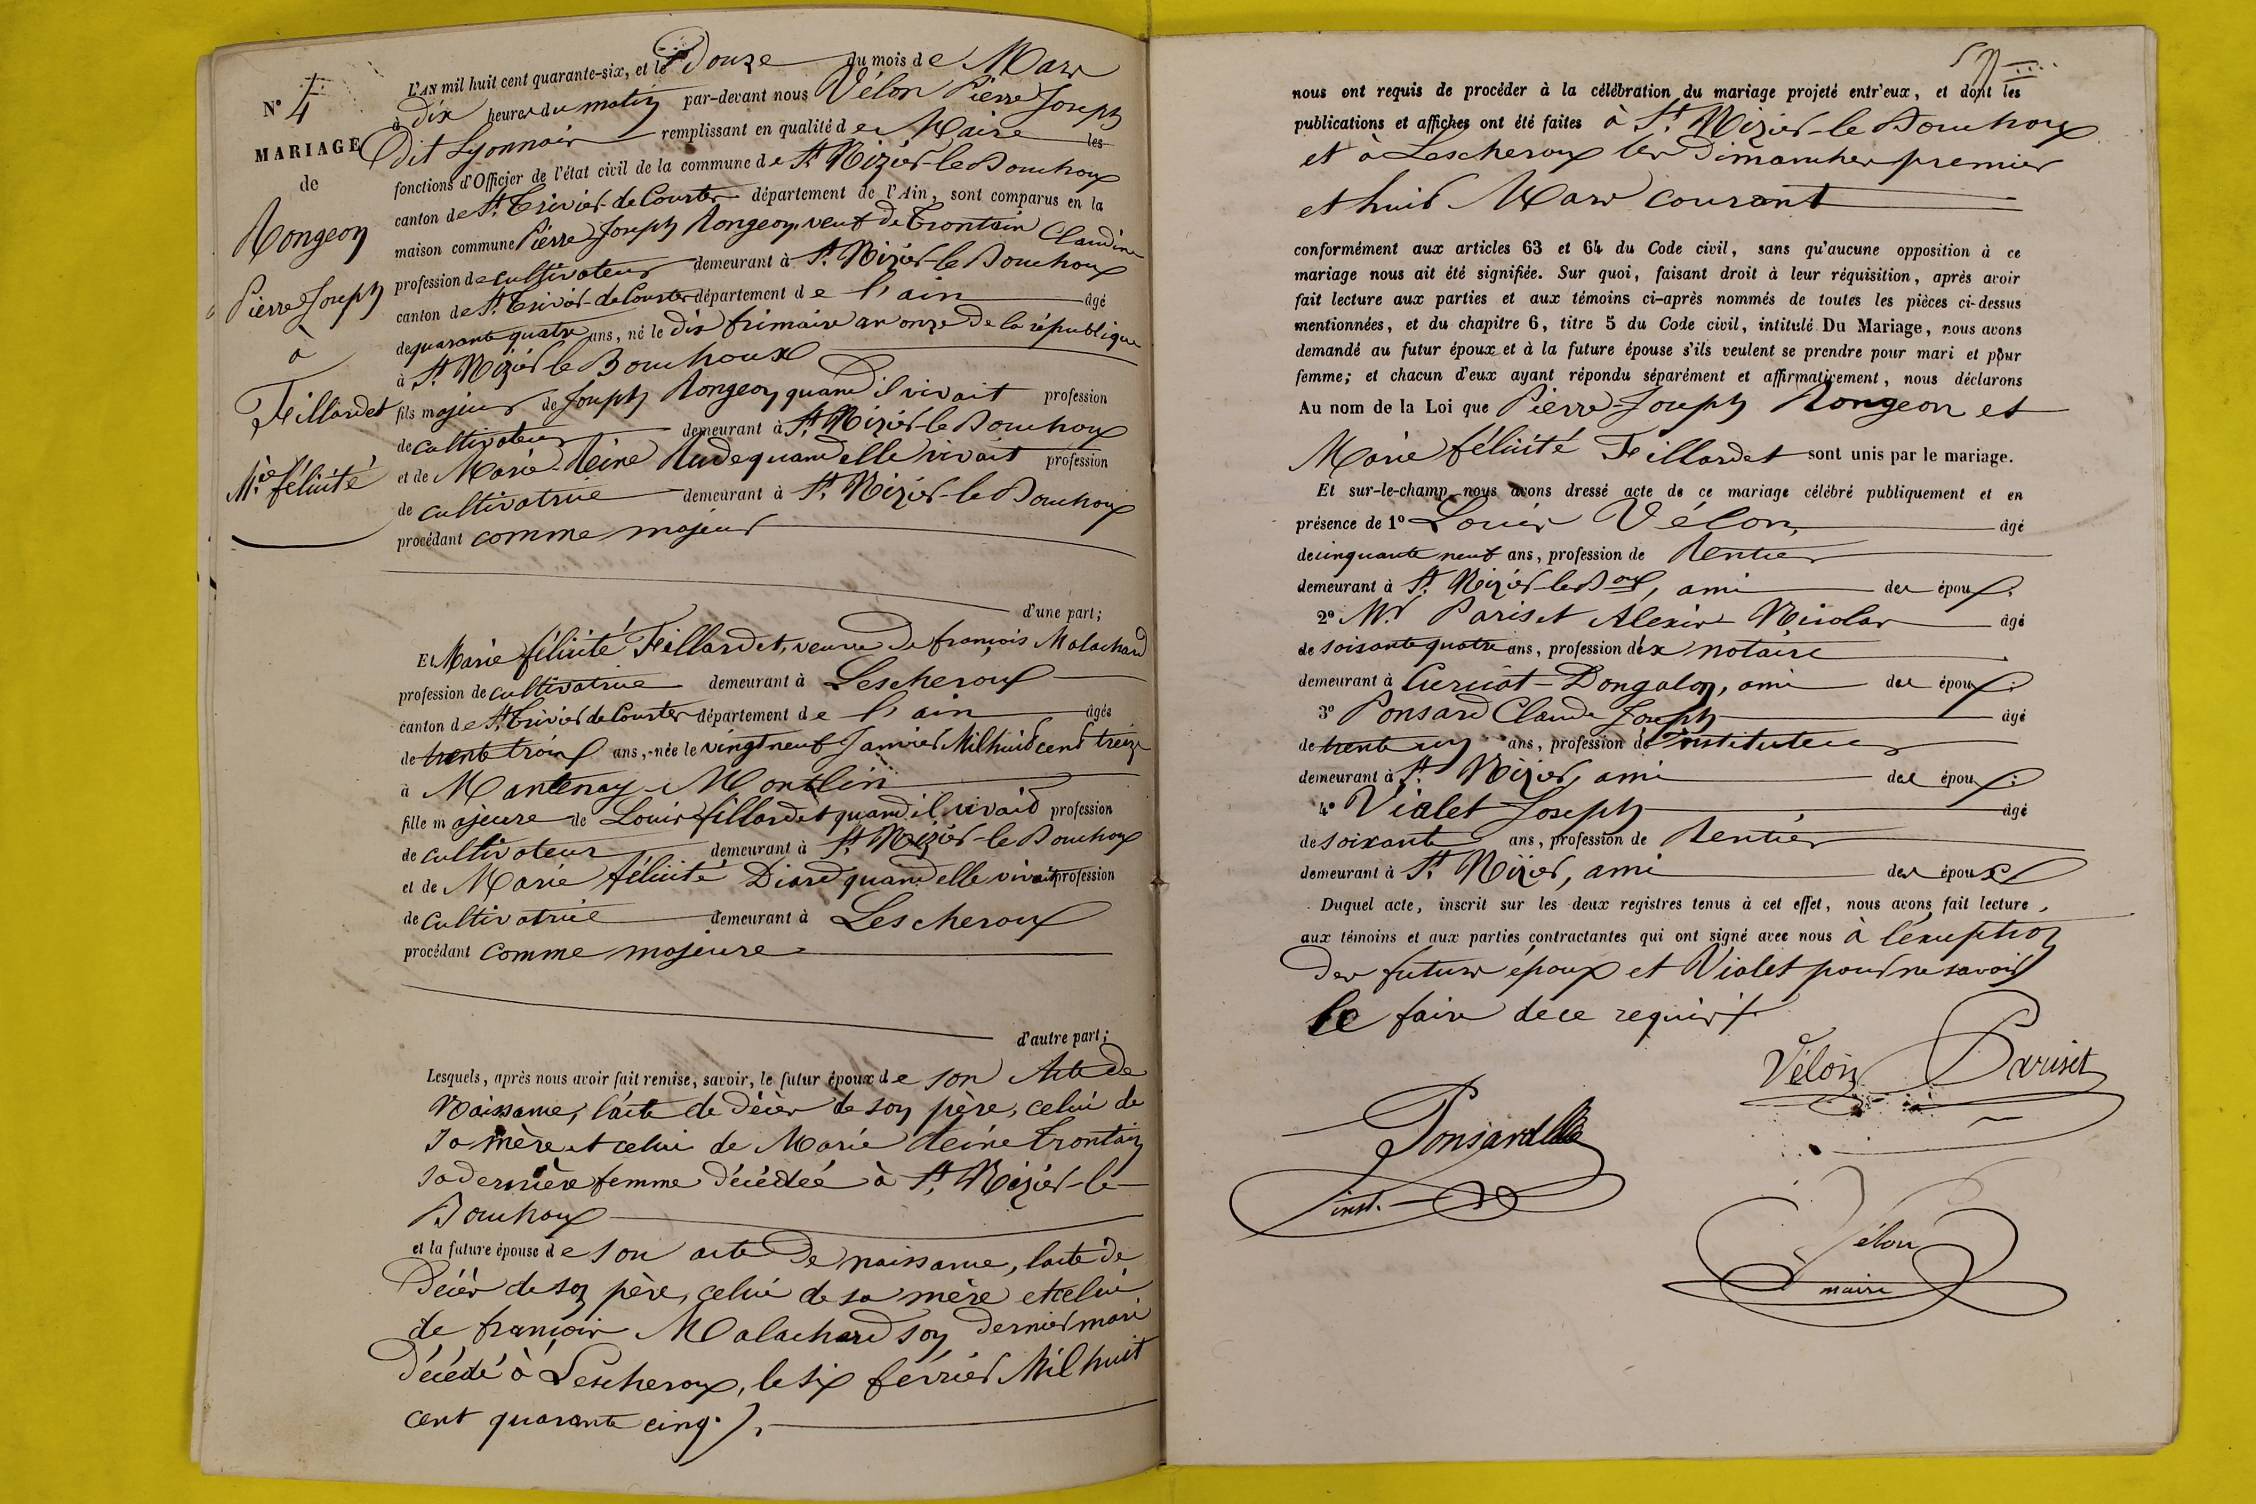 N° 4
MARIAGE
de
Rongeon
Pierre Joseph
à
Fillardet
M.ie félicité
L'AN mil huit cent quarante-six, et le Douze du mois de Mars
à dix heures du matin par-devant nous Vélon Pierre Joseph
Dit Lyonnais remplissant en qualité de Maire les
fonctions d'Officier de l'état civil de la commune de St. Nizier-le-Bouchoux
canton de St. Trivier-de-Courtes département de l'Ain, sont comparus en la
maison commune Pierre Joseph Rongeon, veuf de Trontain Claudine
profession de cultivateur demeurant à St. Nizier-le-Bouchoux
canton de St. Trivier-de-Courtes département de l'ain âgé
de quarante quatre ans, né le dix frimaire an onze de la république
à St. Nizier le Bouchoux
fils majeur de Joseph Rongeon quand il vivait profession
de cultivateur demeurant à St. Nizier-le-Bouchoux
et de Marie-Reine Rude quand elle vivait profession
de cultivatrice demeurant à St. Nizier-le-Bouchoux
procédant comme majeur
d'une part;
Et Marie félicité Fillardet, veuve de françois Malachard
profession de cultivatrice demeurant à Lescheroux
canton de St. Trivier de Courtes département de l'ain âgés
de trente trois ans, née le vingt neuf Janvier Mil huit cent treize
à Mantenay-Montlin
fille majeure de Louis fillardet quand il vivait profession
de cultivateur demeurant à St. Nizier-le-Bouchoux
et de Marie félicité Diard quand elle vivait profession
de cultivatrice demeurant à Lescheroux
procédant comme majeure
d'autre part;
Lesquels, après nous avoir fait remise, savoir, le futur époux de son Acte de
Naissance, l'acte de décès de son père, celui de
sa mère et celui de Marie Reine Trontain
sa dernière femme décédée à St. Nizier-le-
Bouchoux
et la future épouse de son acte de naissance, l'acte de
décès de son père, celui de sa mère et celui
de françois Malachard son dernier mari
décédé à Lescheroux, le six février Mil huit
cent quarante cinq.
nous ont requis de procéder à la célébration du mariage projeté entr'eux, et dont les
publications et affiches ont été faites à St. Nizier-le-Bouchoux
et à Lescheroux les Dimanches premier
et huit Mars courant
conformément aux articles 63 et 64 du Code civil, sans qu'aucune opposition à ce
mariage nous ait été signifiée. Sur quoi, faisant droit à leur réquisition, après avoir
fait lecture aux parties et aux témoins ci-après nommés de toutes les pièces ci-dessus
mentionnées, et du chapitre 6, titre 5 du Code civil, intitulé Du Mariage, nous avons
demandé au futur époux et à la future épouse s'ils veulent se prendre pour mari et pour
femme; et chacun d'eux ayant répondu séparément et affirmativement, nous déclarons
Au nom de la Loi que Pierre-Joseph Rongeon et
Marie félicité Fillardet sont unis par le mariage.
Et sur-le-champ nous avons dressé acte de ce mariage célébré publiquement et en
présence de 1° Louis Vélon, âgé
de cinquante neuf ans, profession de Rentier
demeurant à St. Nizier-le-Boux, ami des époux.
2° Mr. Pariset Alexis-Nicolas âgé
de soixante quatre ans, profession d'ex notaire
demeurant à Curciat-Dongalon, ami des époux.
3° Ponsard Claude Joseph âgé
de trente un ans, profession de instituteur
demeurant à St. Nizier, ami des époux.
4° Vialet Joseph âgé
de soixante ans, profession de Rentier
demeurant à St. Nizier, ami des époux
Duquel acte, inscrit sur les deux registres tenus à cet effet, nous avons fait lecture
aux témoins et aux parties contractantes qui ont signé avec nous à l'exception
des futurs époux et Vialet pour ne savoir
le faire de ce requis.
Vélon Pariset
Ponsard
inst.
Vélon
maire